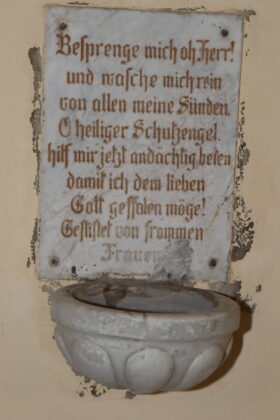 Besprenge mich oh Herr!
und wasche mich rein
von allen meine Sünden.
O heiliger Schutzengel,
hilf mir jetzt andächtig beten
damit ich dem lieben
Gott gefallen möge!
Gestiftet von frommen
Frauen